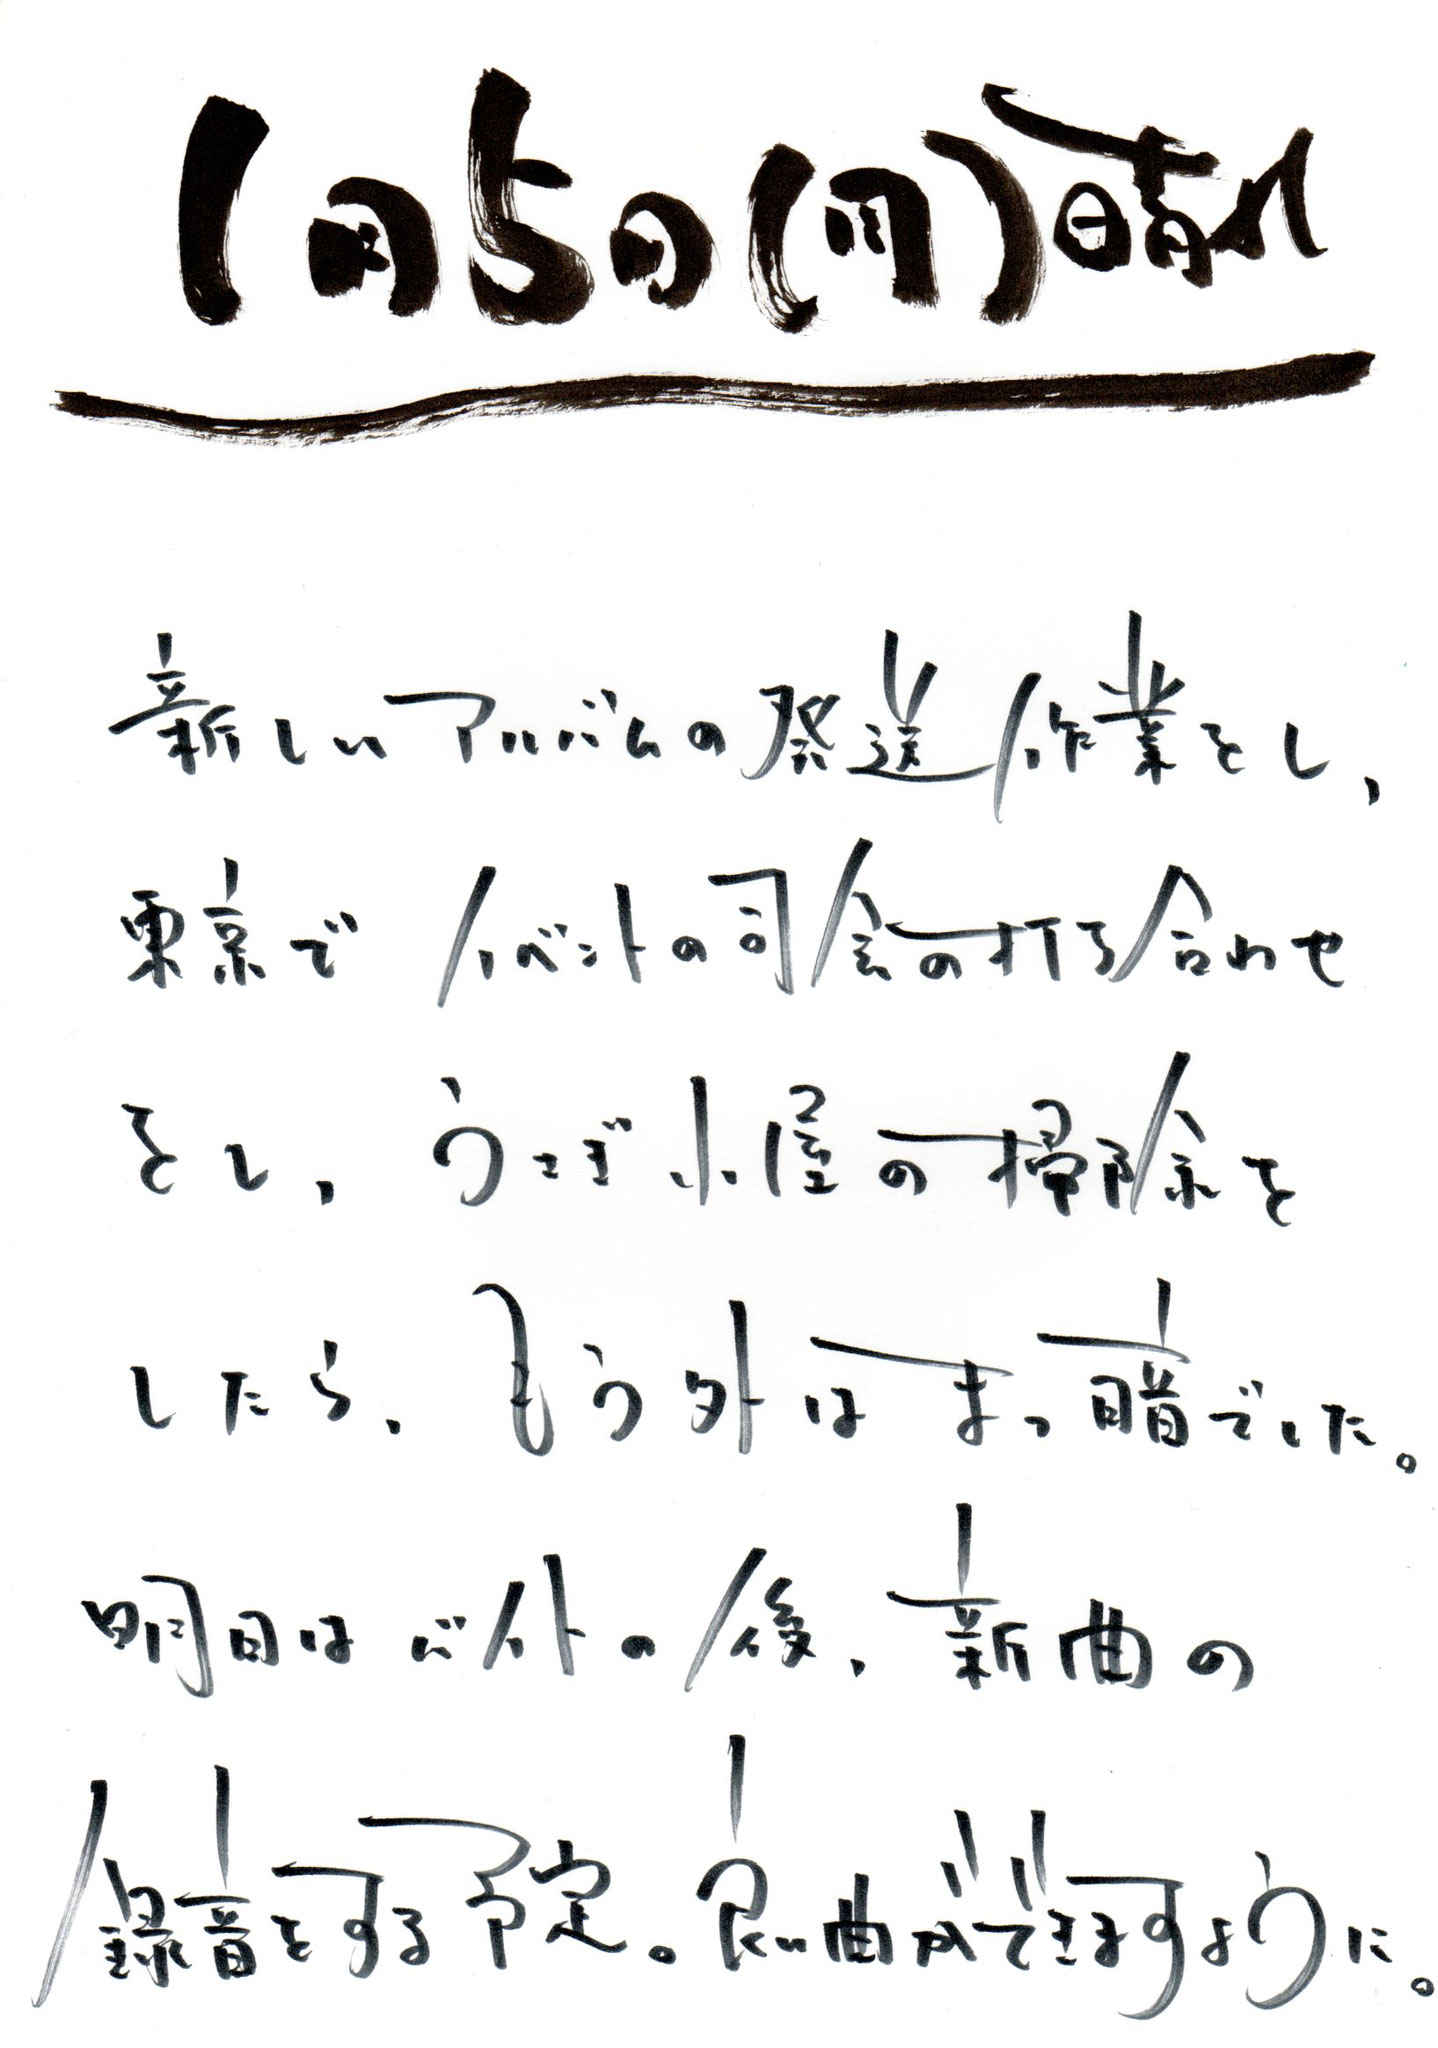 1月5日(月)晴れ
新しいアルバムの発送作業をし、
東京でイベントの司会の打ち合わせ
をし、うさぎ小屋の掃除を
したら、もう外はまっ暗でした。
明日はバイトの後、新曲の
録音をする予定。良い曲ができますように。